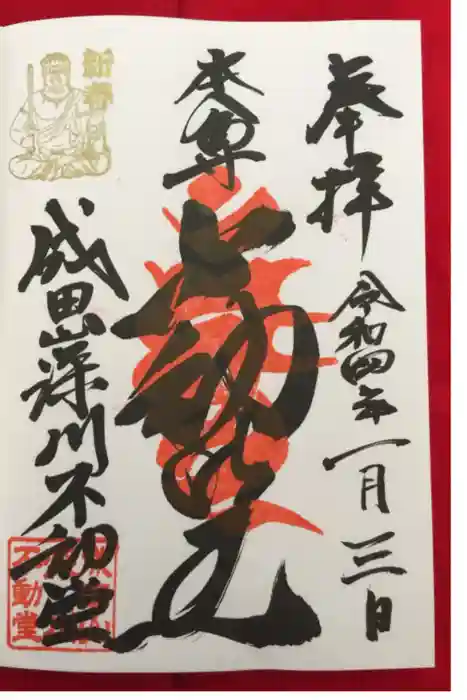 奉拝
令和四年一月三日
本尊
不動明王
新春
成田山深川不動堂
不動堂